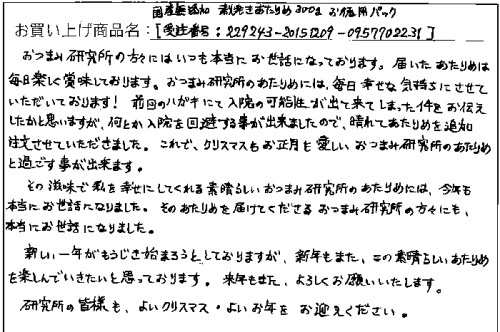 国産無添加 素焼きあたりめ300g お徳用パック
お買い上げ商品名：[受注番号：229243-20151209-0957702231]
おつまみ研究所の方々にはいつも本当にお世話になっております。届いたあたりめは
毎日楽しく賞味しております。おつまみ研究所のあたりめには、毎日幸せな気持ちにさせて
いただいております！ 前回のハガキにて入院の可能性が出て来てしまった件をお伝え
したかと思いますが、何とか入院を回避する事が出来ましたので、晴れてあたりめを追加
注文させていただきました。これで、クリスマスもお正月も愛しいおつまみ研究所のあたりめ
と過ごす事が出来ます。
その滋味で私を幸せにしてくれる素晴らしいおつまみ研究所のあたりめには、今年も
本当にお世話になりました。そのあたりめを届けてくださるおつまみ研究所の方々にも、
本当にお世話になりました。
新しい一年がもうじき始まろうとしておりますが、新年もまた、この素晴らしいあたりめ
を楽しんでいきたいと思っております。来年もまた、よろしくお願いいたします。
研究所の皆様も、よいクリスマス・よいお年を お迎えください。